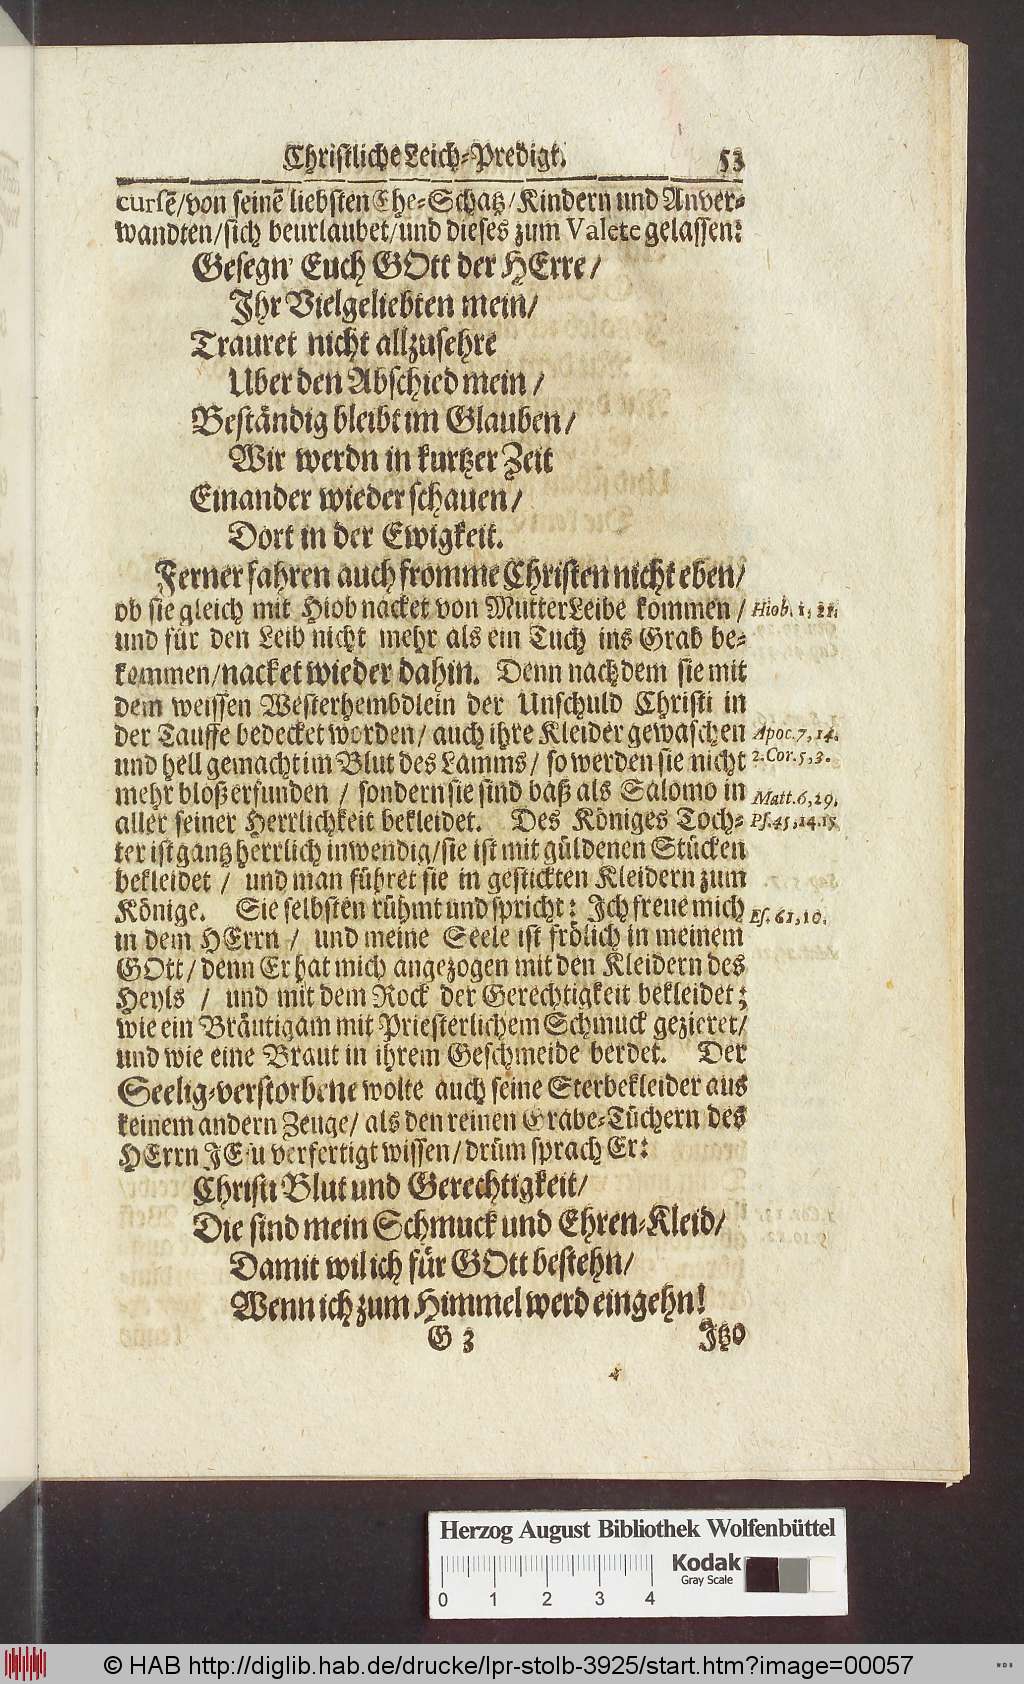 Christliche Leich-Predigt. 53
cursẽ/von seinẽ liebsten Ehe-Schatz/Kindern und Anver-
wandten/sich beurlaubet/und dieses zum Valete gelassen:
Gesegn' Euch GOtt der HErre/
Ihr Vielgeliebten mein/
Trauret nicht allzusehre
Uber den Abschied mein/
Beständig bleibt im Glauben/
Wir werdn in kurtzer Zeit
Einander wieder schauen/
Dort in der Ewigkeit.
Ferner fahren auch fromme Christen nicht eben/
ob sie gleich mit Hiob nacket von Mutter Leibe kommen/ Hiob. 1, 21.
und für den Leib nicht mehr als ein Tuch ins Grab be-
kommen/nacket wieder dahin. Denn nachdem sie mit
dem weissen Westerhembdlein der Unschuld Christi in
der Tauffe bedecket worden/ auch ihre Kleider gewaschen Apoc. 7, 14.
und hell gemacht im Blut des Lamms/ so werden sie nicht 2. Cor. 5, 3.
mehr bloß erfunden / sondern sie sind baß als Salomo in Matt. 6, 29.
aller seiner Herrlichkeit bekleidet. Des Königes Toch- Ps. 45, 14. 15
ter ist gantz herrlich inwendig/sie ist mit güldenen Stücken
bekleidet / und man führet sie in gestickten Kleidern zum
Könige. Sie selbsten rühmt und spricht: Ich freue mich Es. 61, 10.
in dem HErrn / und meine Seele ist frölich in meinem
GOtt/denn Er hat mich angezogen mit den Kleidern des
Heyls / und mit dem Rock der Gerechtigkeit bekleidet;
wie ein Bräutigam mit Priesterlichem Schmuck gezieret/
und wie eine Braut in ihrem Geschmeide berdet. Der
Seelig-verstorbene wolte auch seine Sterbekleider aus
keinem andern Zeuge/ als den reinen Grabe-Tüchern des
HErrn JEsu verfertigt wissen/drüm sprach Er:
Christi Blut und Gerechtigkeit/
Die sind mein Schmuck und Ehren-Kleid/
Damit wil ich für GOtt bestehn/
Wenn ich zum Himmel werd eingehn!
G 3 Itzo
Herzog August Bibliothek Wolfenbüttel
Kodak
Gray Scale
0 1 2 3 4
© HAB http://diglib.hab.de/drucke/lpr-stolb-3925/start.htm?image=00057